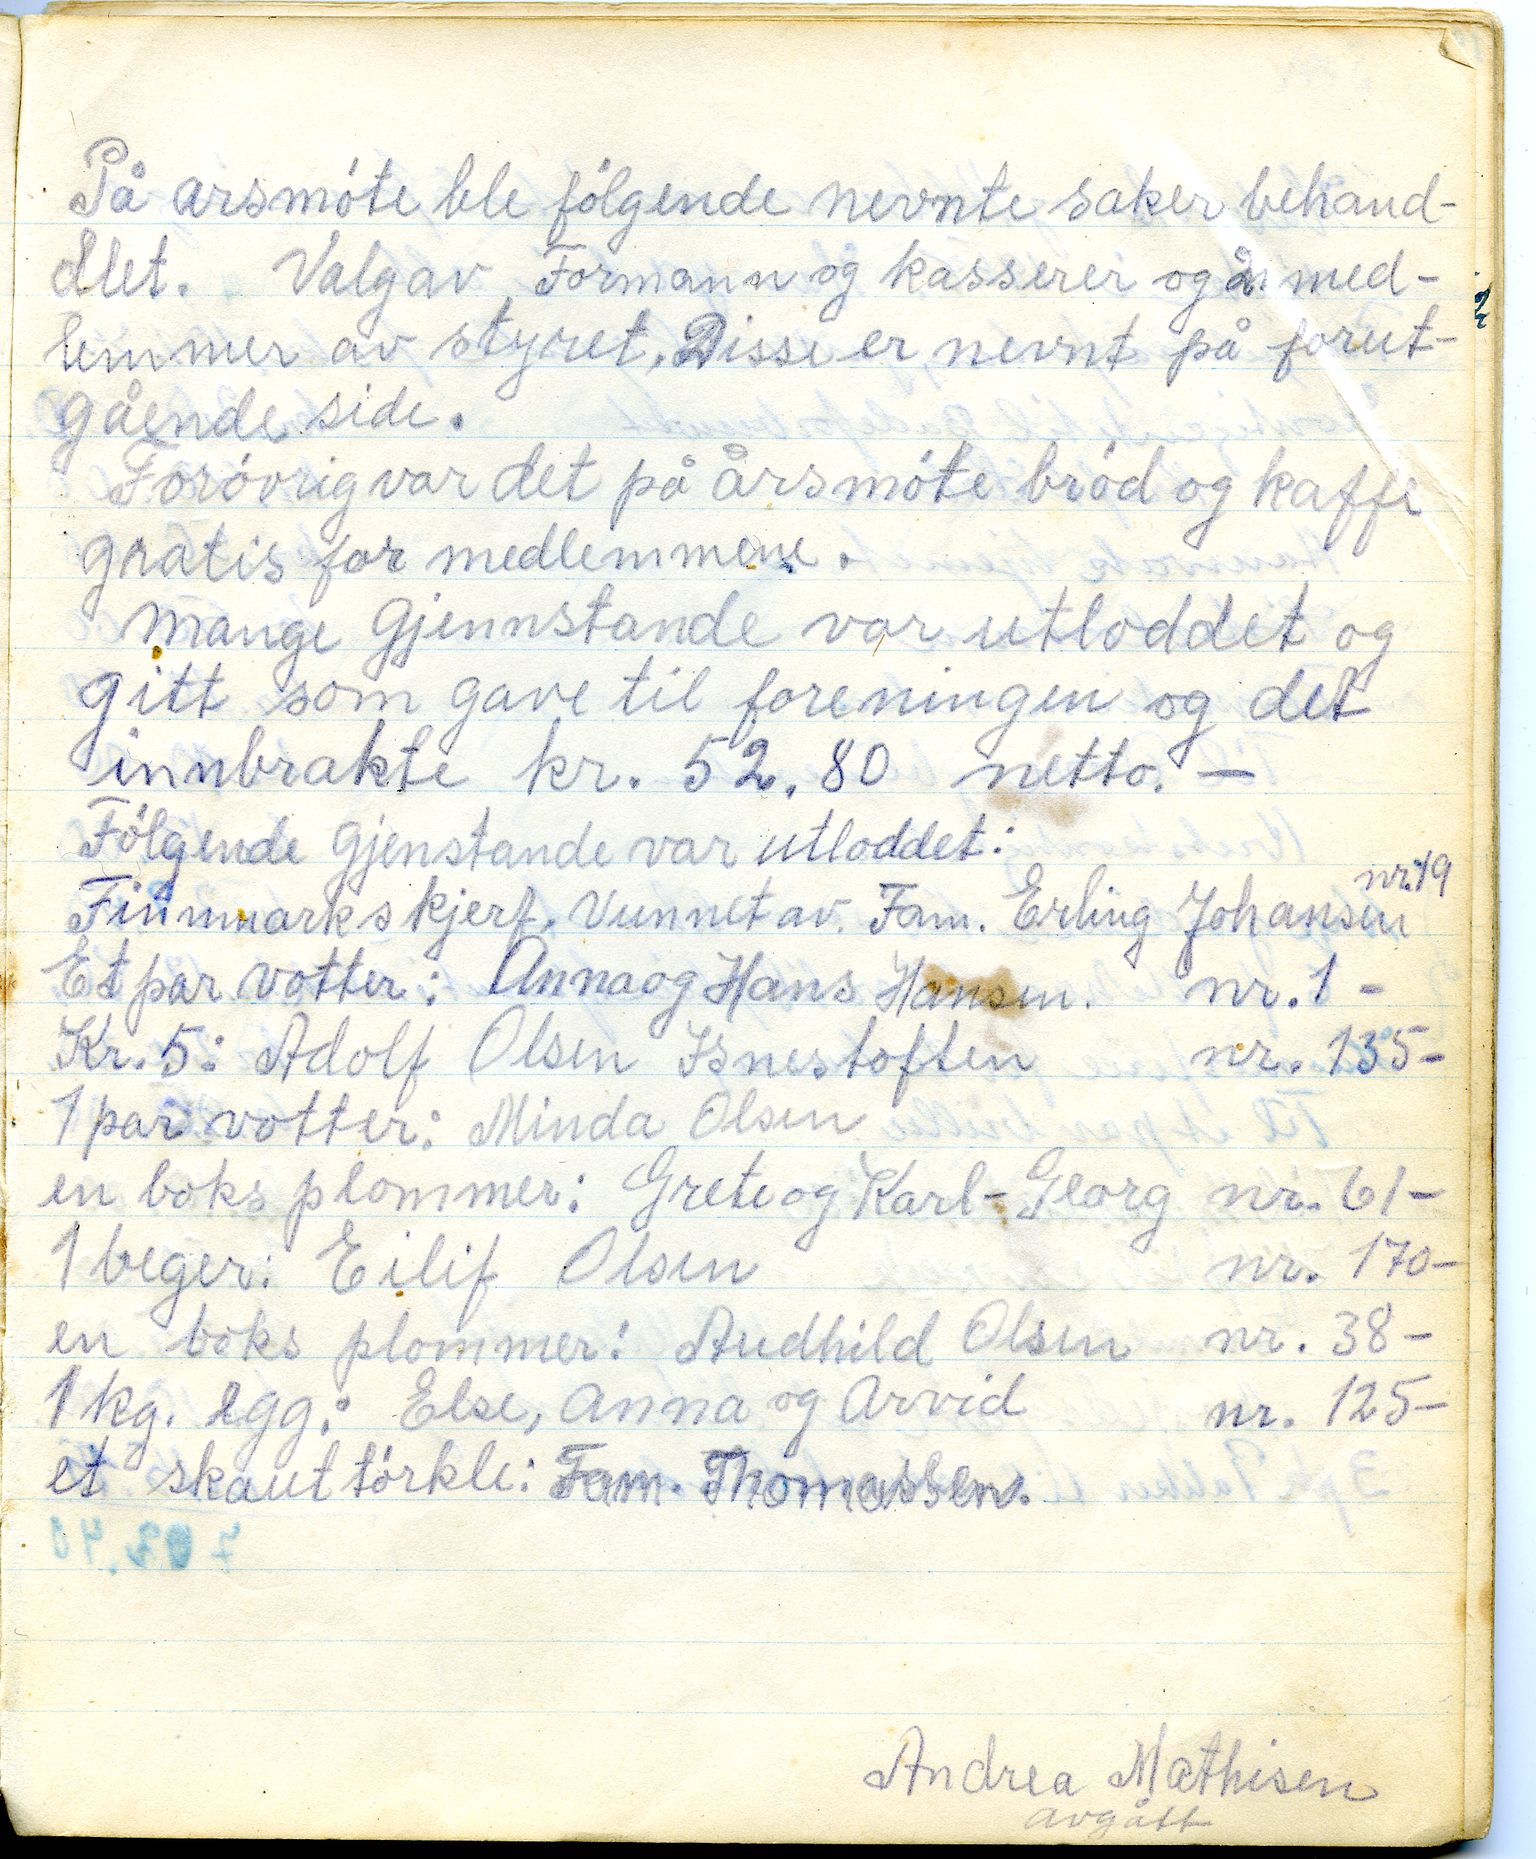 På arsmóte ble fólgende nevnte saker behand-
dlet. Valg av Formann og kasserer og 2 med-
lemmer av styret. Disse er nevnt på forut-
gående side.
Foróvrig var det på årsmóte bród og kaffe
gratis for medlemmene.
Mange gjennstande var utloddet og
gitt som gave til foreningen og det
innbrakte kr. 52.80 netto. —
Fólgende gjenstande var utloddet:
Finnmarkskjerf. Vunnet av. Fam. Erling Johansen nr. 19
Et par votter: Anna og Hans Hansen. nr. 1 -
Kr. 5: Adolf Olsen Isnestoften nr. 135-
1 par votter: Minda Olsen
en boks plommer: Grete og Karl-Georg nr. 61-
1 beger: Eilif Olsen nr. 170-
en boks plommer: Audhild Olsen nr. 38-
1 kg. egg: Else, Anna og Arvid nr. 125-
et skauttórkle: Fam. Thomassen.
Andrea Mathisen
avgått